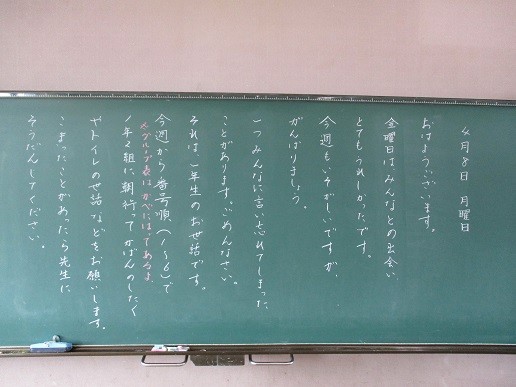 4月8日 月曜日
おはようございます。
金曜日はみんなとの出会い、
とてもうれしかったです。
今週もいそがしいですが、
がんばりましょう。
一つみんなに言い忘れてしまった
ことがあります。ごめんなさい。
それは一年生のお世話です。
今週から番号順(1〜6)で
↑グループ表はかべにはってあるよ。
1年2組に朝行ってかばんのしたく
やトイレの世話などをお願いします。
こまったことがあったら先生に
そうだんしてください。